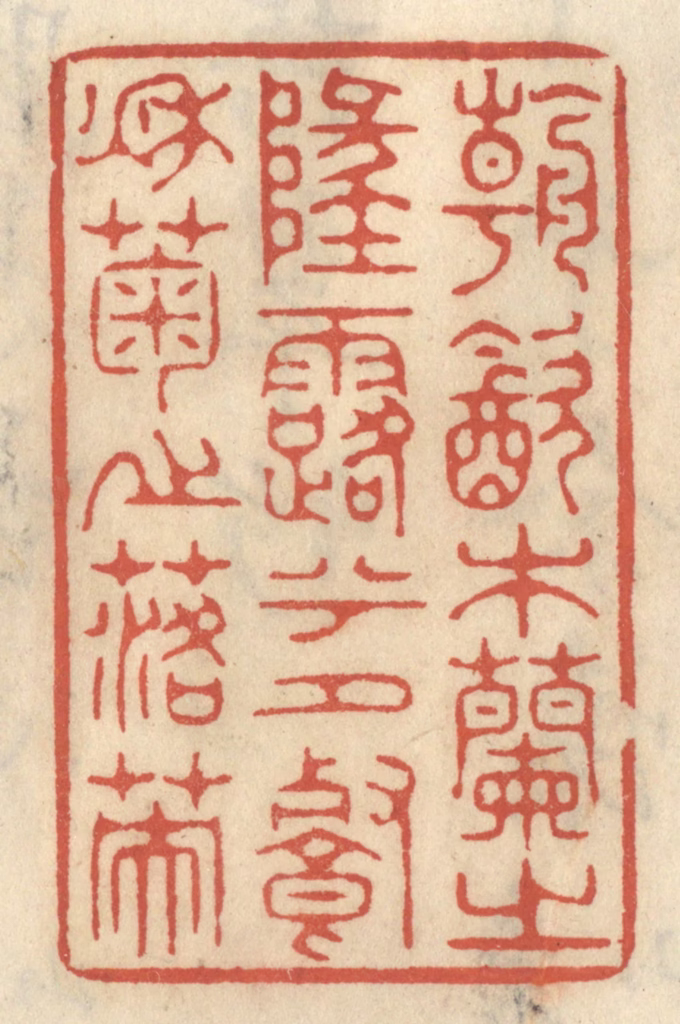 朝飲木蘭之
隊露兮夕餐
秋菊之落英